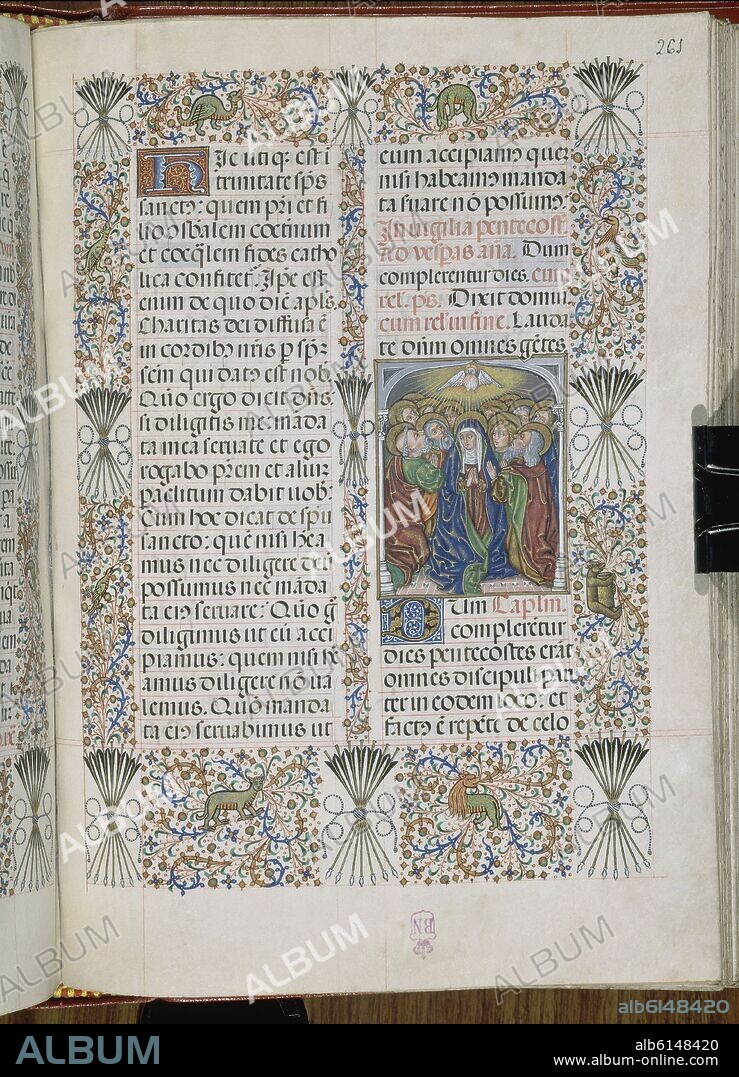 261
Hic utiqz est i
trinitate sps
sanctus: quem pri et fi
lio
et coeqlem fides catho
lica confitet. Ipse est
enim de quo dic apls
Charitas dei diffusa e
in cordibus nris p spm
scm qui datus est nob
Quo ergo dicit dns
si diligitis me: manda
ta mea servate et ego
rogabo prem et aliuz
paclitum dabit vob
Cum hoc dicat de spu
sancto: que nisi hea
mus nec diligere deu
possumus nec manda
ta eius servare: Quo
diligimus ut eu acci
piamus: quem nisi
amus diligere no va
lemus. Quo manda
ta eius servabimus ut
eum accipiamus quez
nisi habeamus manda
ta suare no possumus
In vigilia pentecost.
Ad vespas ana. Dum
complerentur dies. cum
rel. ps. Dixit domin.
cum rel. in fine. Lauda
te dum omnes getes
Dum Caplm.
complerentur
dies pentecostes erat
omnes discipuli pari
ter in eodem loco: et
factus e repete de celo
BN
ALBUM
alb6148420
ALBUM
alb6148420
www.album-online.com